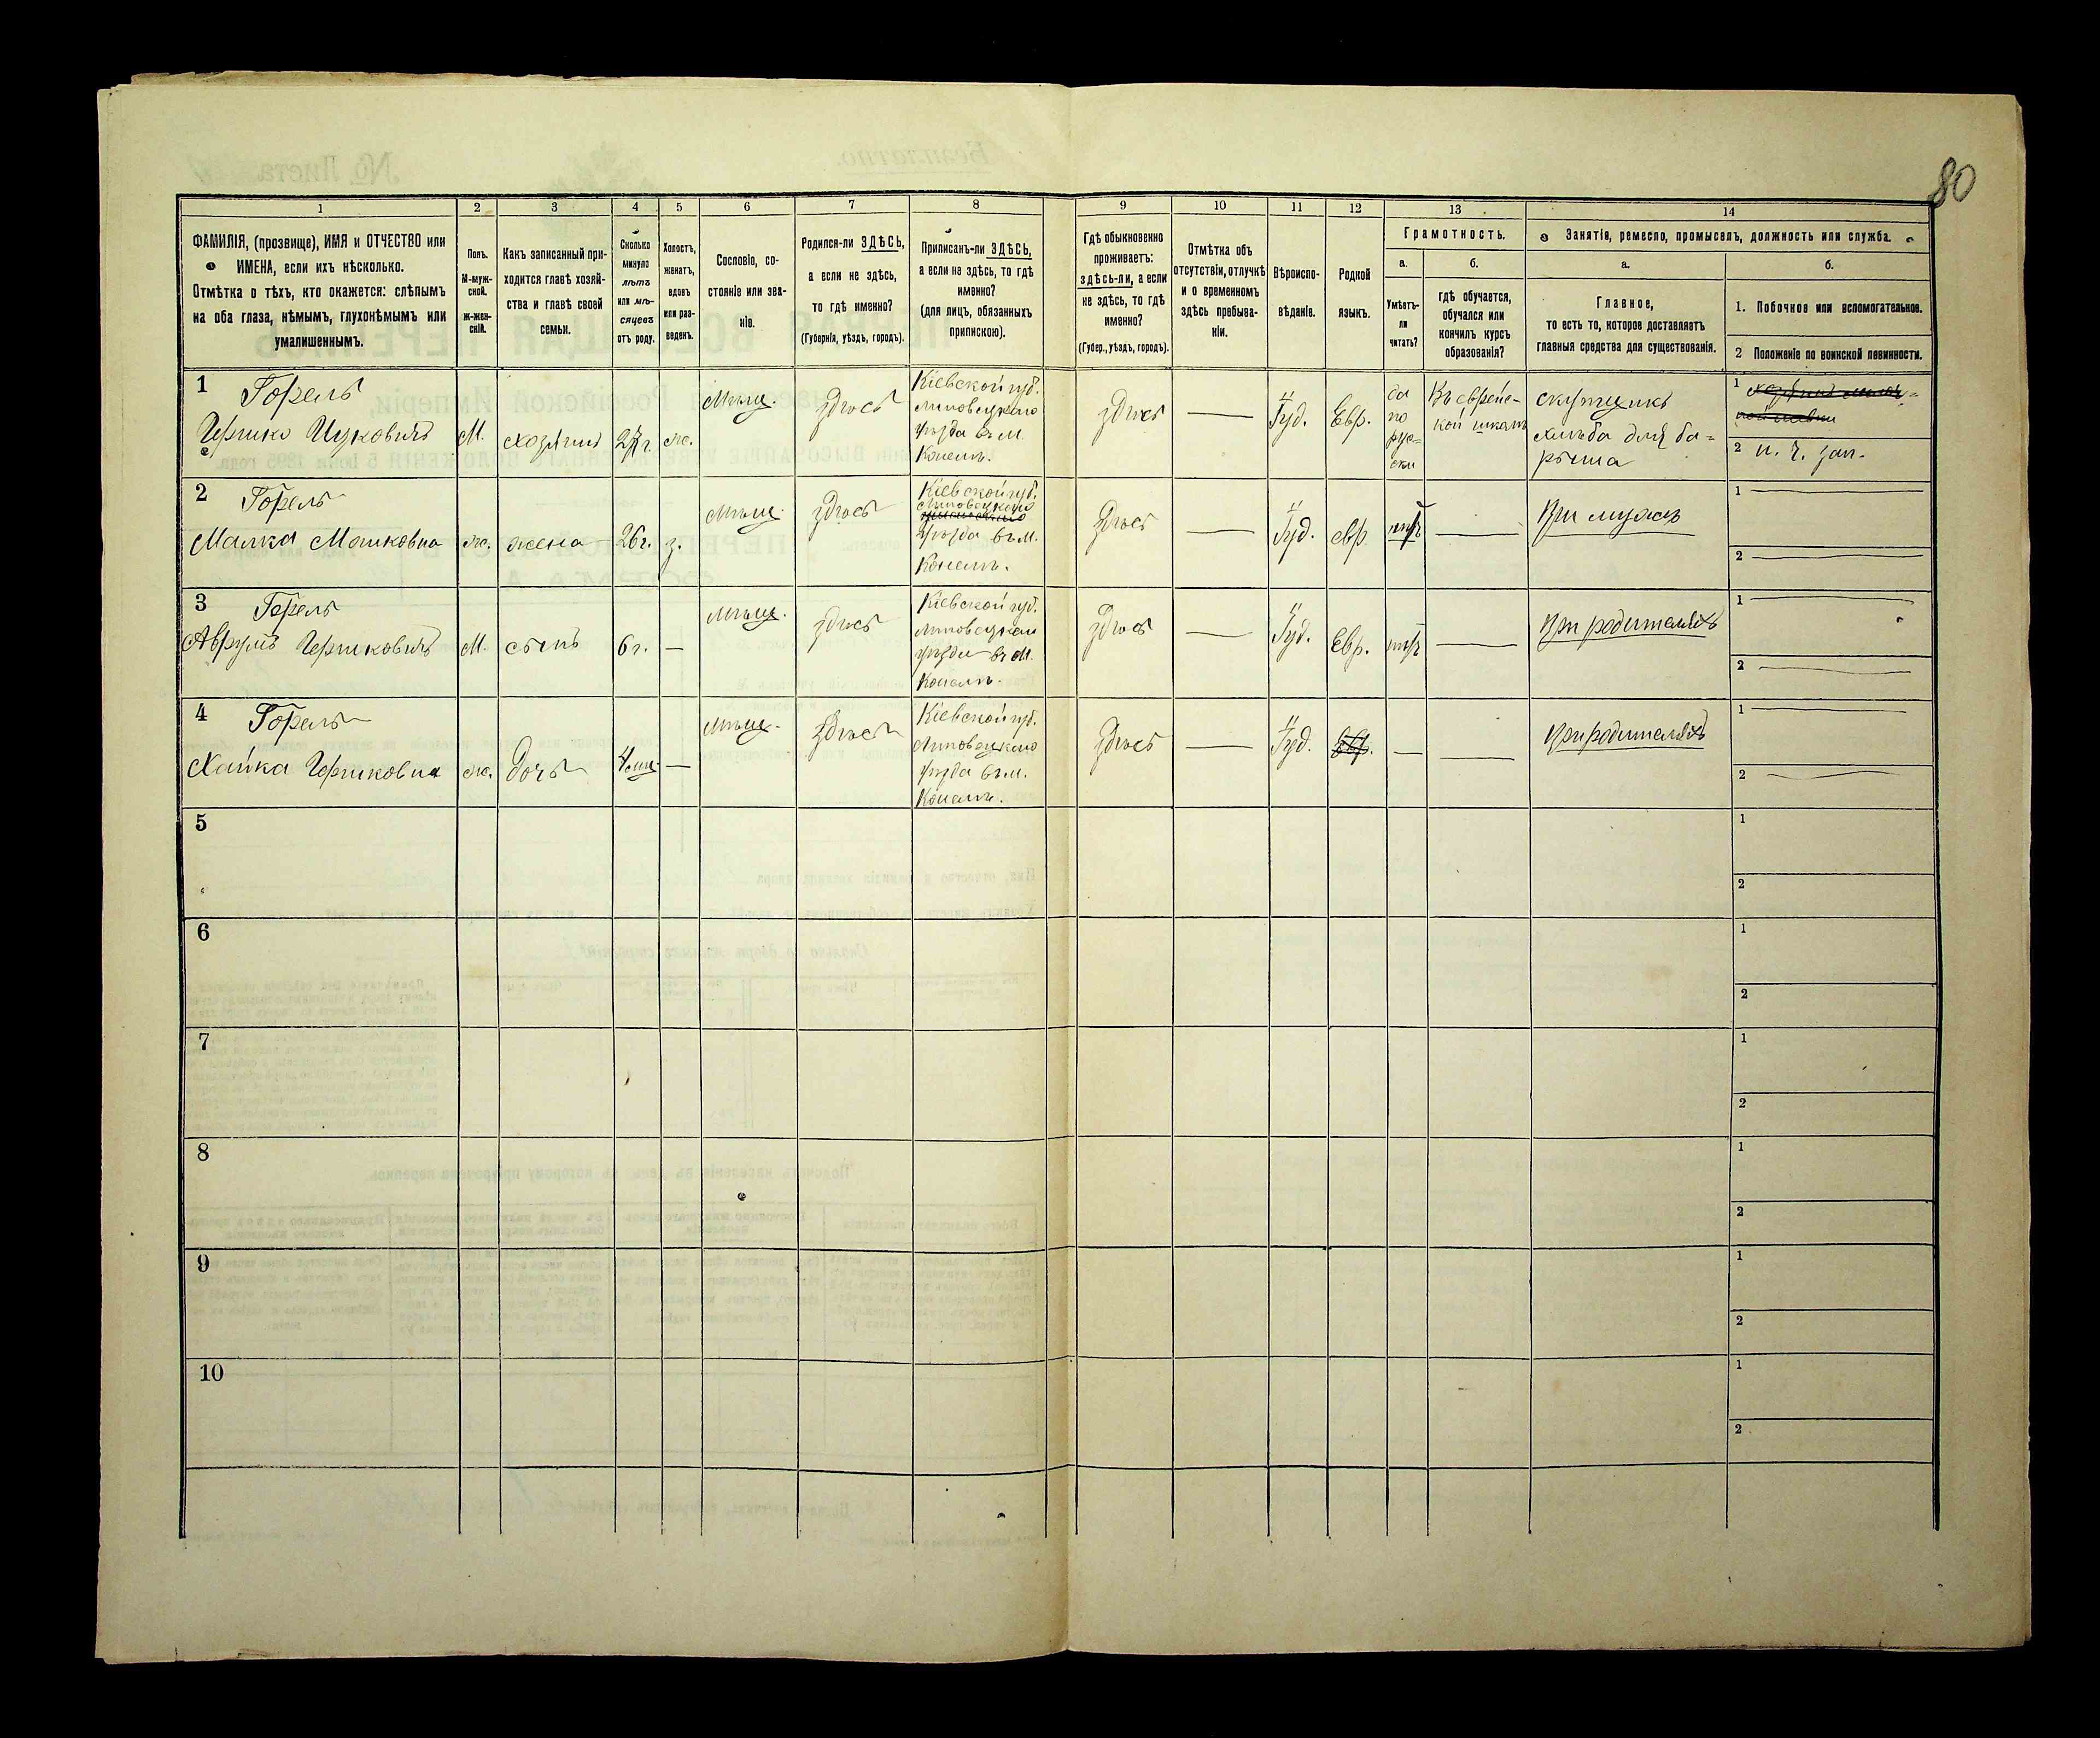 80
1
2
3
4
5
6
7
8
9
10
11
12
13
14
ФАМИЛІЯ, (прозвище), ИМЯ и ОТЧЕСТВО или
ИМЕНА, если ихъ нѣсколько.
Отмѣтка о тѣхъ, кто окажется: слѣпымъ
на оба глаза, нѣмымъ, глухонѣмымъ или
умалишеннымъ.
Полъ.
М-муж-
ской.
Ж-жен-
скій.
Какъ записанный при-
ходится главѣ хозяй-
ства и главѣ своей
семьи.
Сколько
минуло
лѣтъ
или мѣ-
сяцевъ
отъ роду.
Холостъ,
женатъ,
вдовъ
или раз-
веденъ.
Сословіе, со-
стояніе или зва-
ніе.
Родился-ли ЗДѢСЬ,
а если не здѣсь,
то гдѣ именно?
(Губернія, уѣздъ, городъ).
Приписанъ-ли ЗДѢСЬ,
а если не здѣсь, то гдѣ
именно?
(для лицъ, обязанныхъ
припискою).
Гдѣ обыкновенно
проживаетъ:
здѣсь-ли, а если
не здѣсь, то гдѣ
именно?
(Губер., уѣздъ, городъ).
Отмѣтка объ
отсутствіи, отлучкѣ
и о временномъ
здѣсь пребыва-
ніи.
Вѣроиспо-
вѣданіе.
Родной
языкъ.
Грамотность.
а.
Умѣетъ-
ли
читать?
б.
гдѣ обучается,
обучался или
кончилъ курсъ
образованія?
Занятіе, ремесло, промыселъ, должность или служба.
а.
Главное,
то есть то, которое доставляетъ
главныя средства для существованія.
б.
1. Побочное или вспомогательное.
2 Положеніе по воинской повинности.
1 Горель
Гершко Ицковичъ
М.
хозяинъ
г.
ж.
мѣщ.
здѣсь
Кіевской губ.
Липовецкаго
уѣзда въ м.
Конелѣ.
здѣсь
—
Іуд.
Евр.
да
по
рус-
ски
Въ еврейс-
кой школѣ
скупщикъ
хлѣба для ба-
рыша
1
2 н. ч. зап.
2 Горель
Малка Мошковна
ж.
жена
26 г.
з.
мѣщ.
здѣсь
Кіевской губ.
Липовецкаго
уѣзда въ м.
Конелѣ.
здѣсь
—
Іуд.
евр.
нѣтъ
—
При мужѣ
1 —
2 —
3 Горель
Аврумъ Гершковичъ
М.
сынъ
6 г.
—
мѣщ.
здѣсь
Кіевской губ.
Липовецкаго
уѣзда въ м.
Конелѣ.
здѣсь
—
Іуд.
Евр.
нѣтъ
—
При родителяхъ
1 —
2 —
4 Горель
Хайка Гершковна
ж.
дочь
4 мц.
—
мѣщ.
здѣсь
Кіевской губ.
Липовецкаго
уѣзда въ м.
Конелѣ.
здѣсь
—
Іуд.
Евр.
—
—
При родителяхъ
1 —
2 —
5
1
2
6
1
2
7
1
2
8
1
2
9
1
2
10
1
2